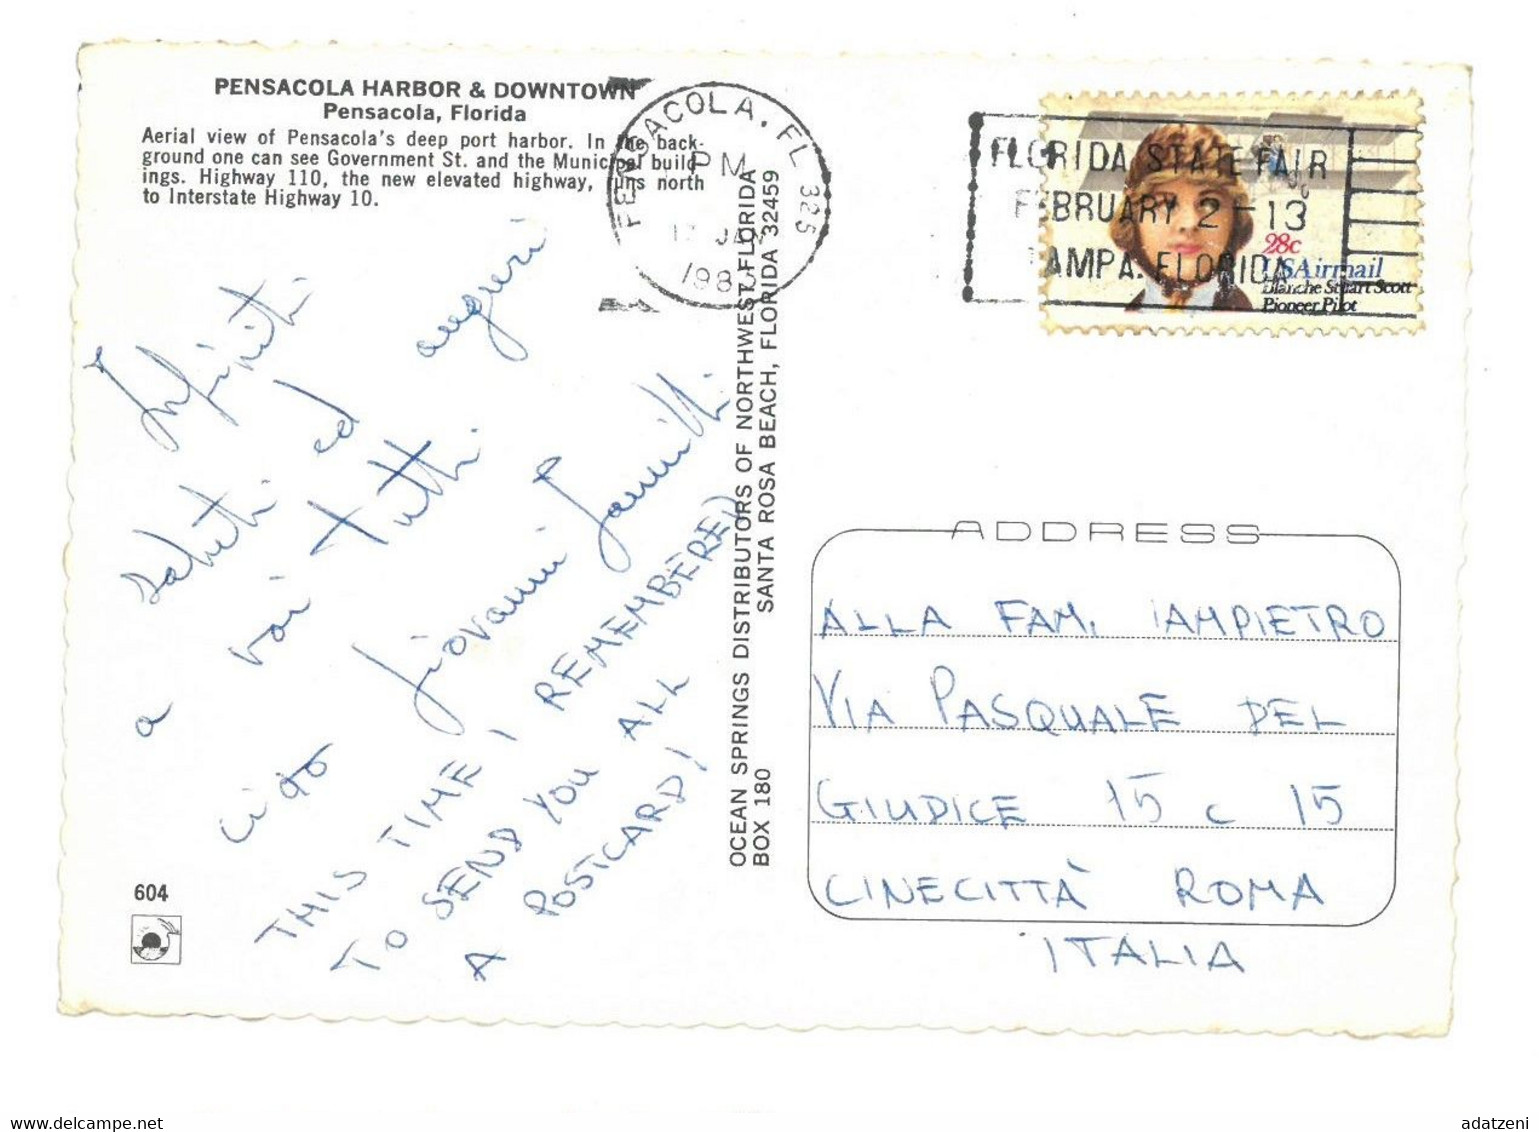 PENSACOLA HARBOR & DOWNTOWN
Pensacola, Florida
Aerial view of Pensacola's deep port harbor. In the back-
ground one can see Government St. and the Municipal build-
ings. Highway 110, the new elevated highway, runs north
to Interstate Highway 10.
PENSACOLA, FL 325
PM
JAN
FLORIDA STATE FAIR
FEBRUARY 2-13
TAMPA. FLORIDA
28c
USAirmail
Blanche Stuart Scott
Pioneer Pilot
Infiniti
saluti ed auguri
a voi tutti
Giovanni
ciao
THIS TIME I REMEMBERED
TO SEND YOU ALL
A POSTCARD!
604
OCEAN SPRINGS DISTRIBUTORS OF NORTHWEST FLORIDA
BOX 180 SANTA ROSA BEACH, FLORIDA 32459
ADDRESS
ALLA FAM. IAMPIETRO
VIA PASQUALE DEL
GIUDICE 15 C 15
CINECITTÀ ROMA
ITALIA
delcampe.net
adatzeni